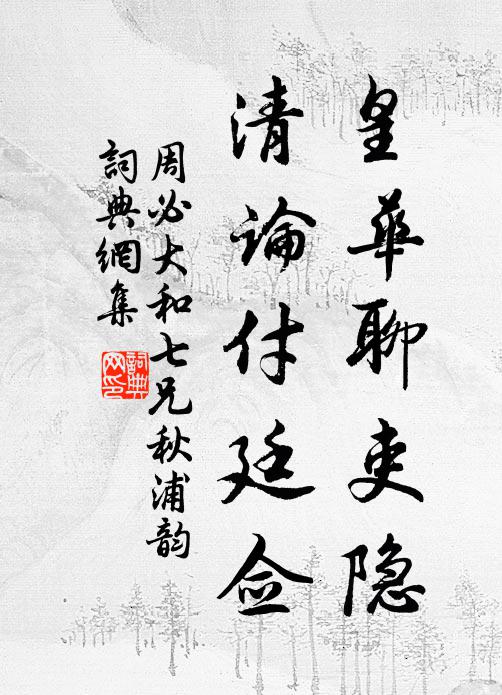 皇華聊吏隐
清論付廷僉
周必大和七兄秋浦韵
詞典網集
詞典网印